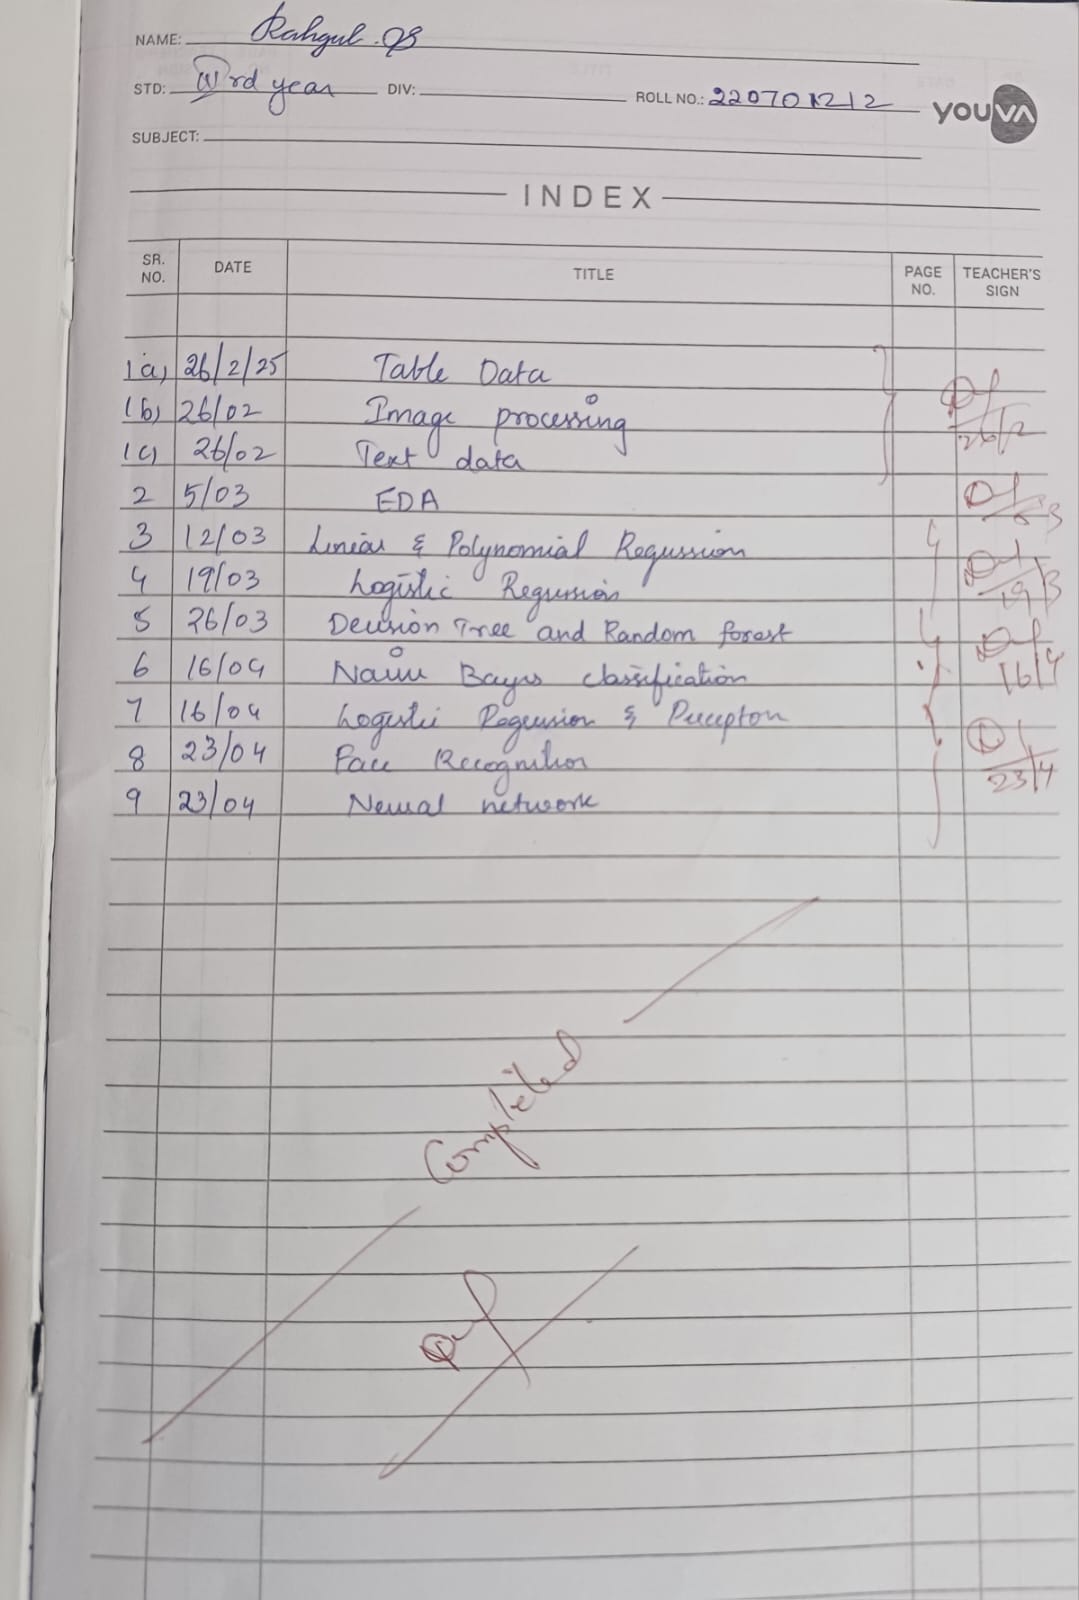 NAME: Rahgul. GS
STD: IIIrd year DIV: ROLL NO.: 220701212
YOUVA
SUBJECT:
INDEX
SR. NO. DATE TITLE PAGE NO. TEACHER'S SIGN
1a) 26/2/25 Table Data
1b) 26/02 Image processing
26/2
1c) 26/02 Text data
2 5/03 EDA
3 12/03 Linear & Polynomial Regression
4 19/03 Logistic Regression 19/3
5 26/03 Decision Tree and Random forest
6 16/04 Naive Bayes classification 16/4
7 16/04 Logistic Regression & Perceptron
8 23/04 Face Recognition 23/4
9 23/04 Neural network
Completed